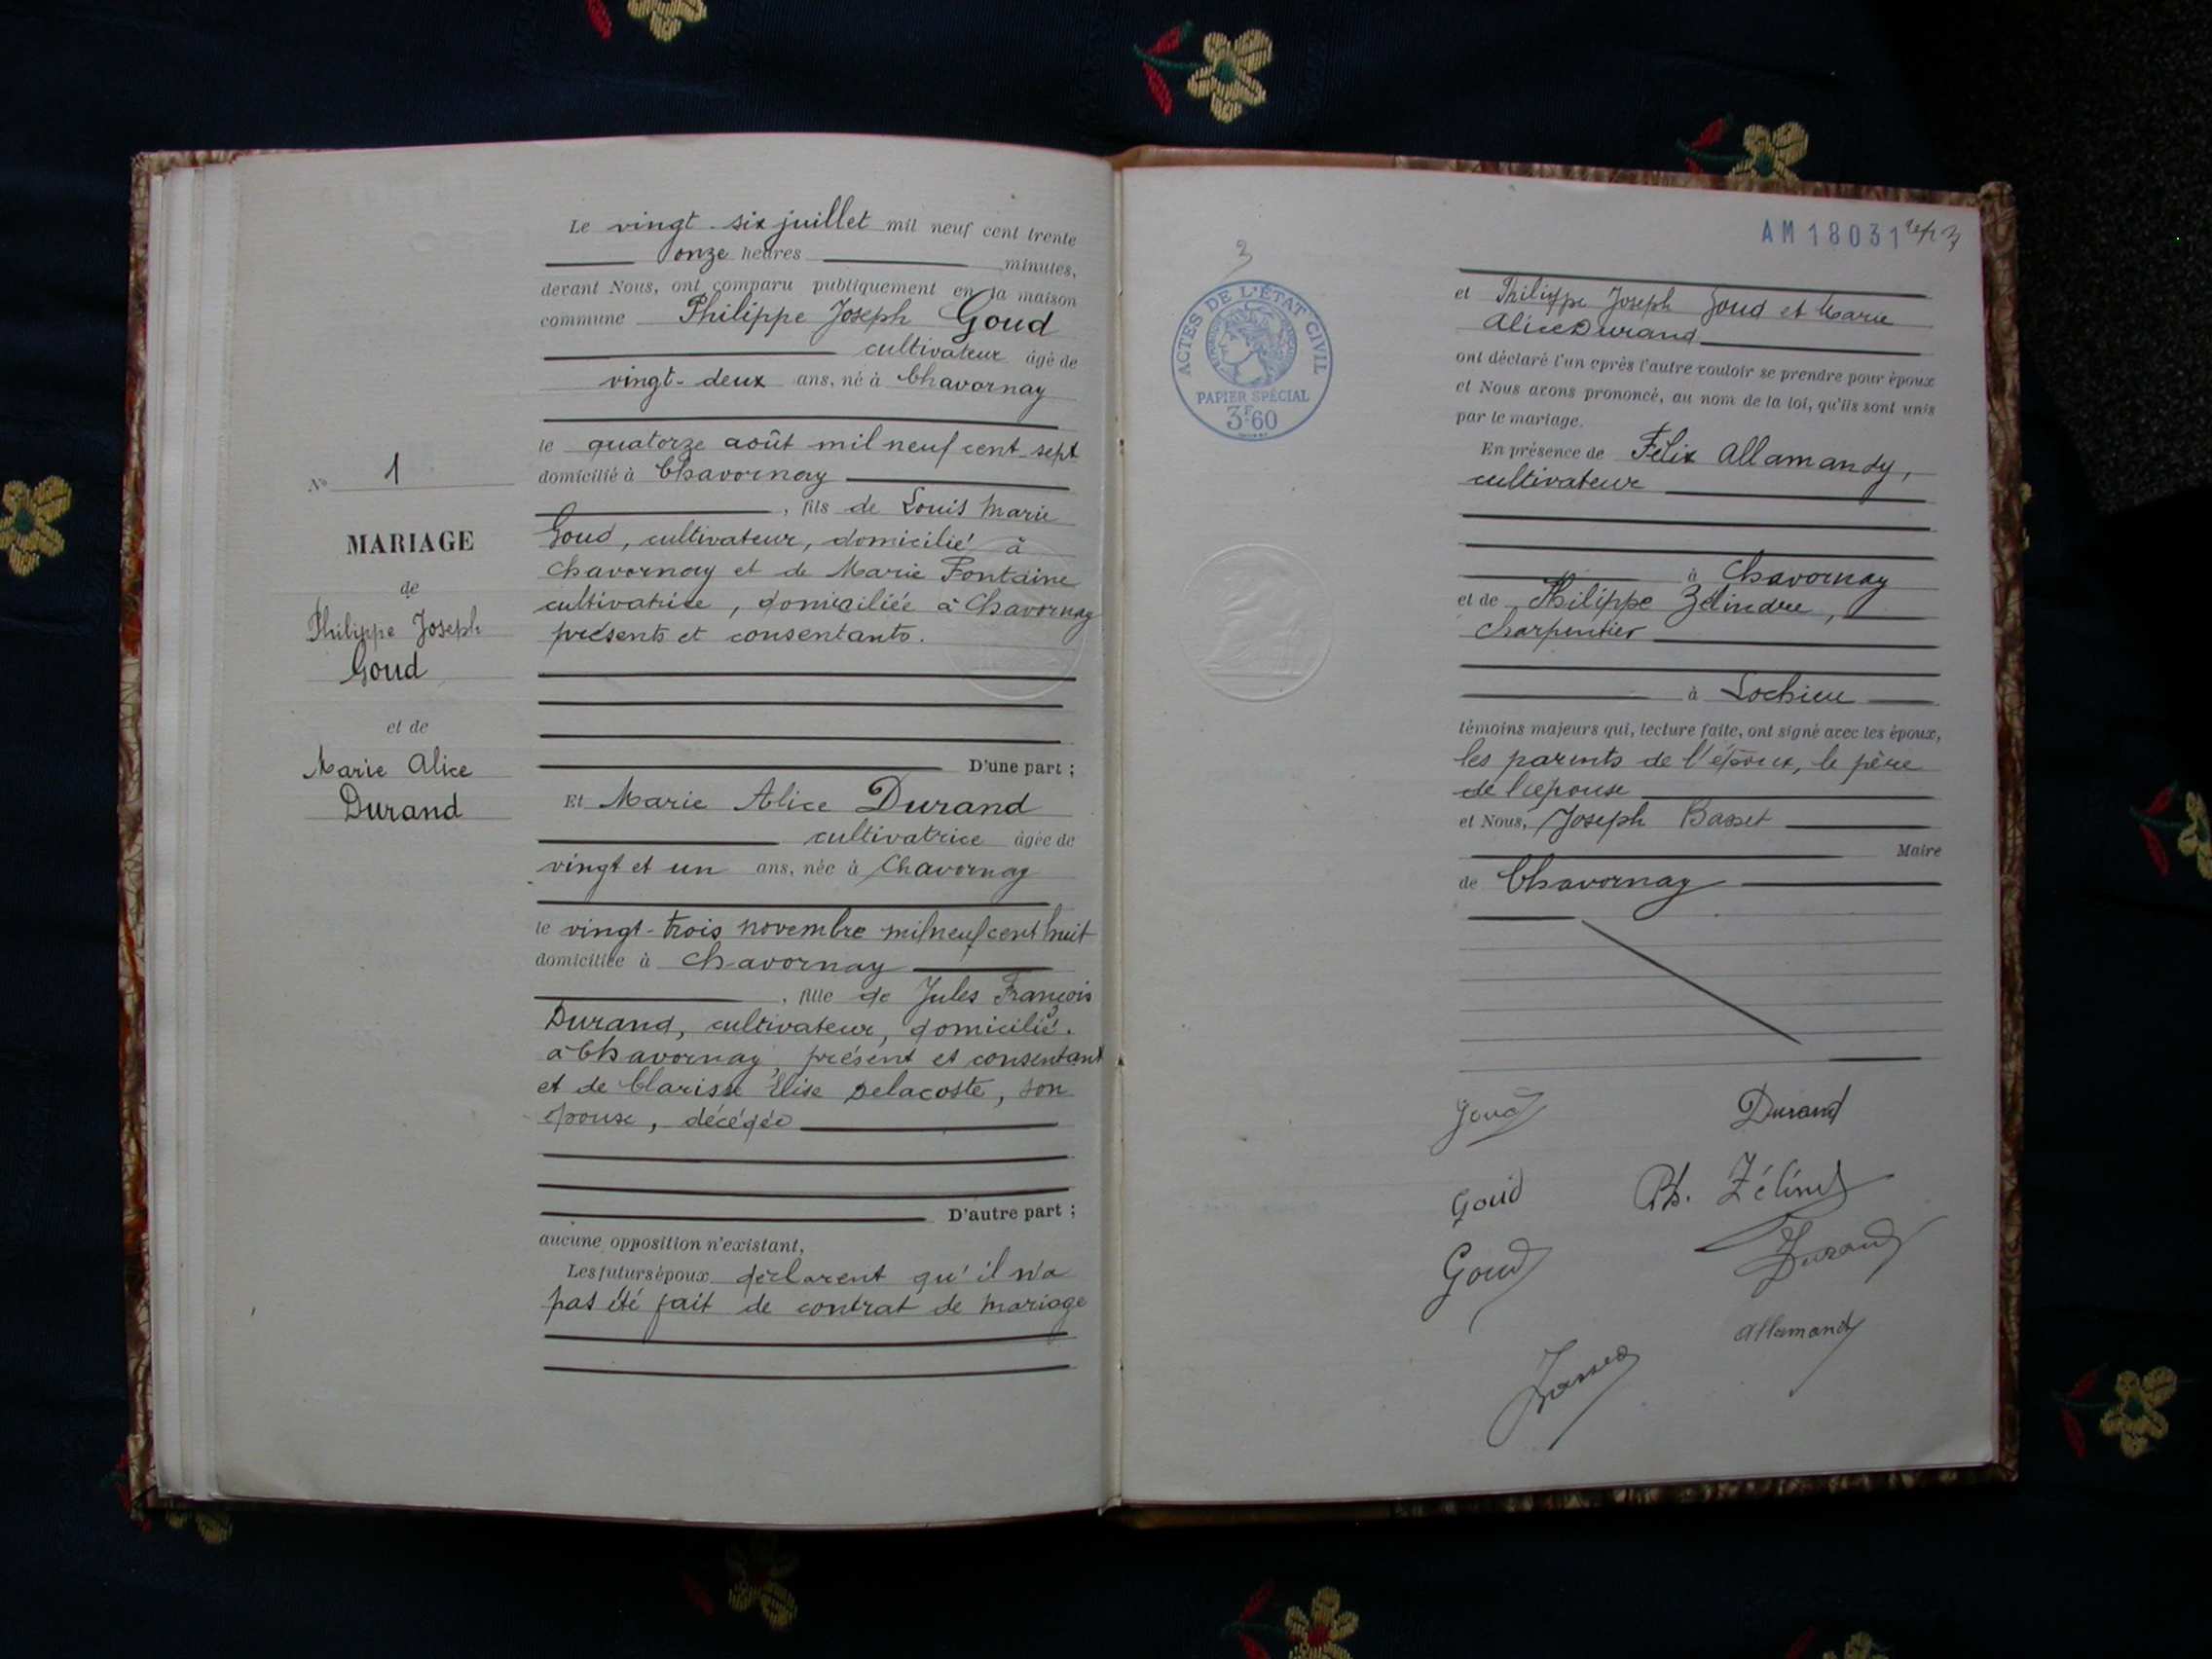 Le vingt-six juillet mil neuf cent trente
onze heures minutes,
devant Nous, ont comparu publiquement en la maison
commune Philippe Joseph Goud
cultivateur âgé de
vingt-deux ans, né à Chavornay
le quatorze août mil neuf cent sept
domicilié à Chavornay
, fils de Louis Marie
Goud, cultivateur, domicilié à
Chavornay et de Marie Fontaine
cultivatrice, domiciliée à Chavornay
présents et consentants.
D'une part ;
Et Marie Alice Durand
cultivatrice âgée de
vingt et un ans, née à Chavornay
le vingt-trois novembre mil neuf cent huit
domiciliée à Chavornay
, fille de Jules François
Durand, cultivateur, domicilié
à Chavornay, présent et consentant
et de Clarisse Elise Delacoste, son
épouse, décédée
D'autre part ;
aucune opposition n'existant,
Les futurs époux déclarent qu'il n'a
pas été fait de contrat de mariage
N° 1
MARIAGE
de
Philippe Joseph
Goud
et de
Marie Alice
Durand
3
ACTES DE L'ÉTAT CIVIL
PAPIER SPÉCIAL
3F60
AM 18031
et Philippe Joseph Goud et Marie
Alice Durand
ont déclaré l'un après l'autre vouloir se prendre pour époux
et Nous avons prononcé, au nom de la loi, qu'ils sont unis
par le mariage.
En présence de Félix Allamandy,
cultivateur
à Chavornay
et de Philippe Zélindre,
charpentier
à Lochieu
témoins majeurs qui, lecture faite, ont signé avec les époux,
les parents de l'époux, le père
de l'épouse
et Nous, Joseph Basset
Maire
de Chavornay
Goud Durand
Goud Ph. Zélind
Goud Durand
Allamandy